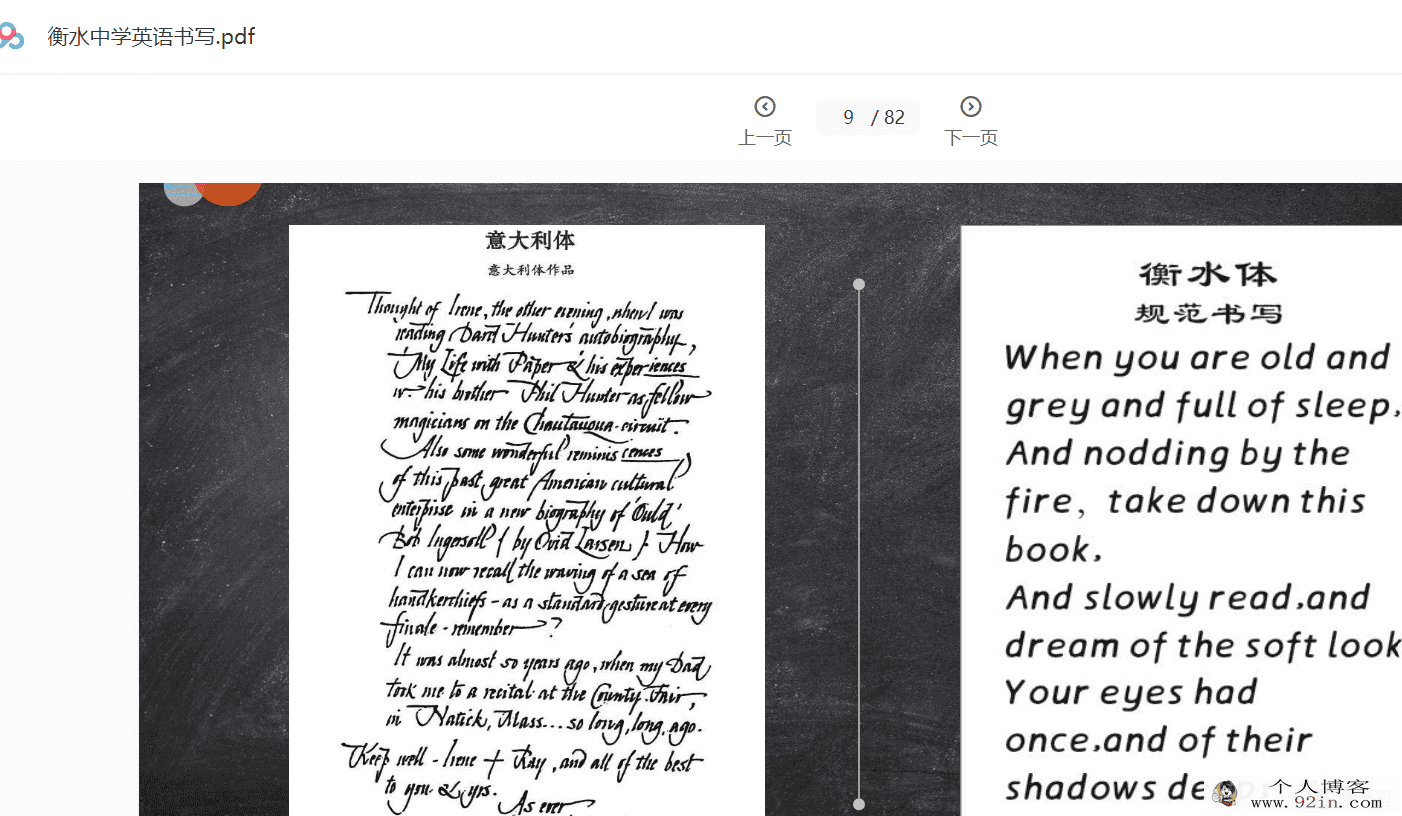 衡水中学英语书写.pdf
9 / 82
上一页
下一页
意大利体
意大利体作品
Thought of Irene, the other evening, when I was
reading Dard Hunter's autobiography,
"My Life with Paper & his experiences
w. his brother Phil Hunter as fellow
magicians on the Chautauqua-circuit.
Also some wonderful reminiscences
of this past, great American cultural
enterprise in a new biography of 'Ould'
Bob Ingersoll { by Ovid Larsen }. How
I can now recall the waving of a sea of
handkerchiefs - as a standard gesture at every
finale - remember?
It was almost 50 years ago, when my Dad
took me to a recital at the County Fair,
in Natick, Mass... so long, long, ago.
Keep well - Irene + Ray, and all of the best
to you & yrs.
As ever
衡水体
规范书写
When you are old and
grey and full of sleep,
And nodding by the
fire, take down this
book,
And slowly read,and
dream of the soft look
Your eyes had
once,and of their
shadows de
个人博客
www.92in.com